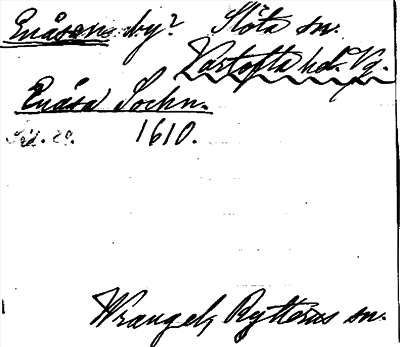 Enåsen by? Slöta sn.
Vartofta hd. Vg.
Enåsa Sochn.
1610.
Wrangel, Rytterns sn.